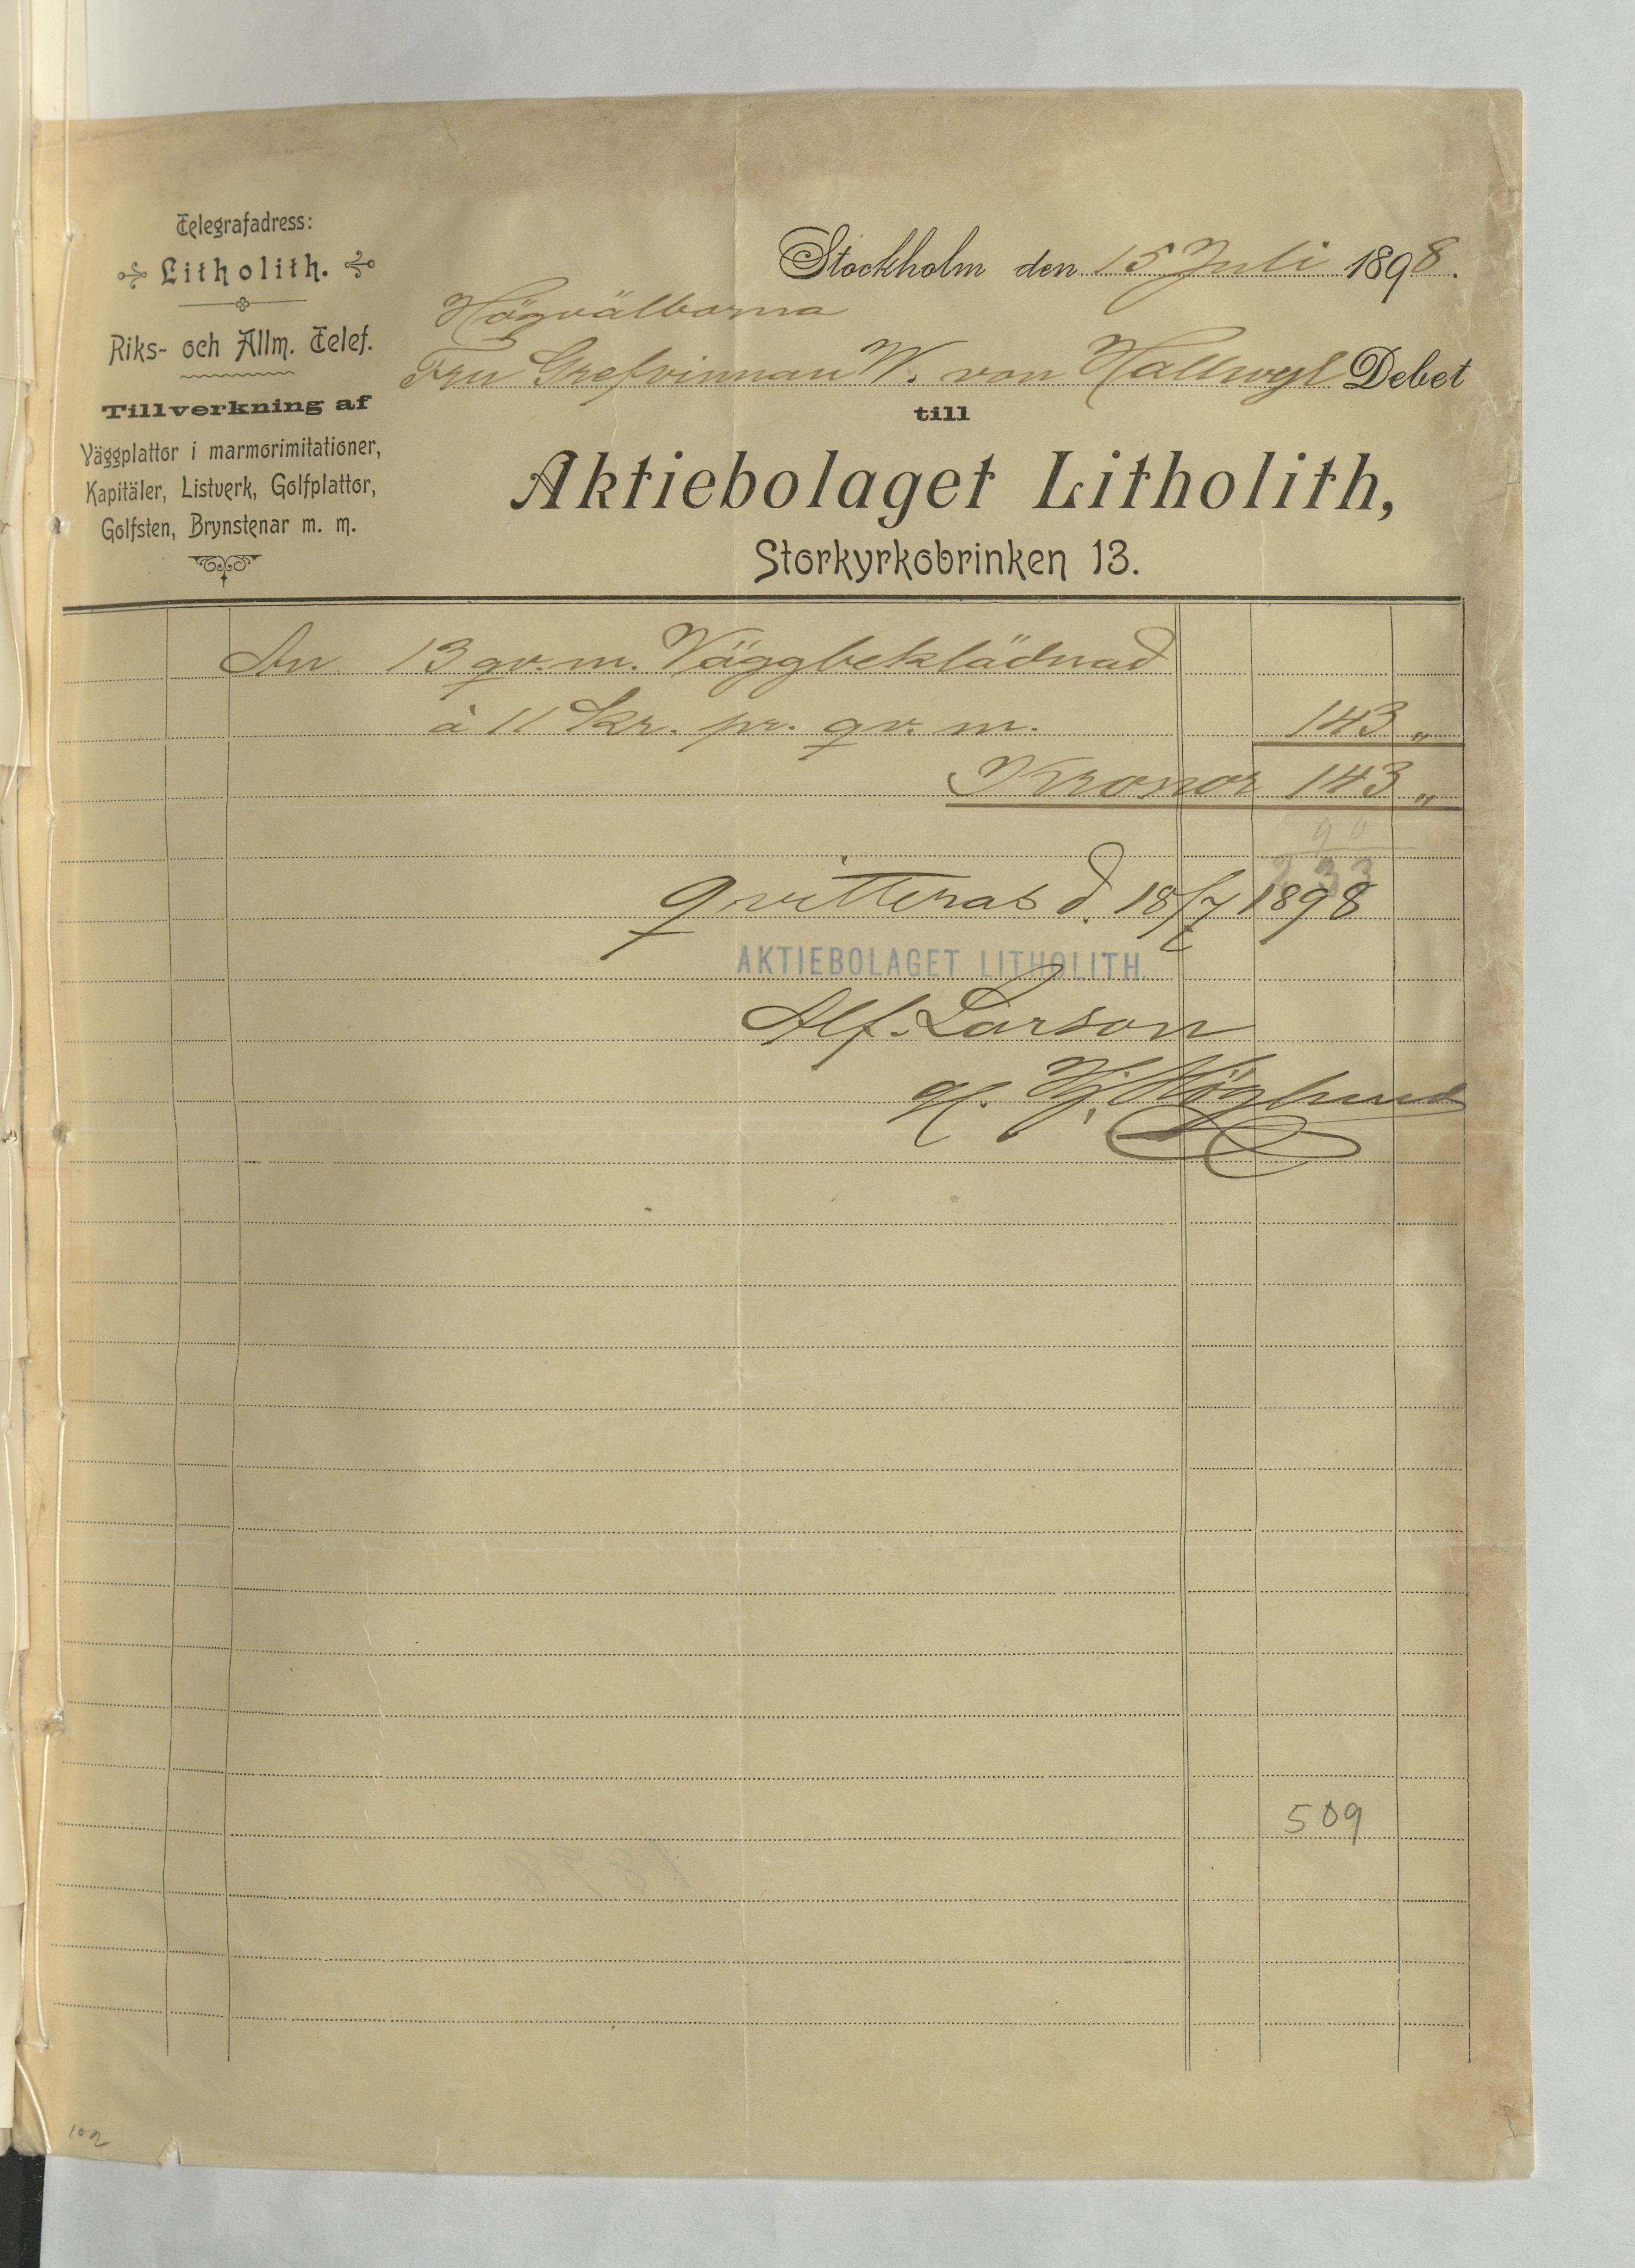 Telegrafadress:
Litholith.
Riks- och Allm. Telef.
Tillverkning af
Väggplattor i marmorimitationer,
Kapitäler, Listverk, Golfplattor,
Golfsten, Brynstenar m. m.
Stockholm den 15 Juli 1898.
Högvälborna
Fru Grefvinnan W. von Hallwyl Debet
till
Aktiebolaget Litholith,
Storkyrkobrinken 13.
An 13 qv. m. Väggbeklädnad
à 11 kr. pr. qv. m. 143 „
Kronor 143 „
90
233
Qvitteras d. 18/7 1898
AKTIEBOLAGET LITHOLITH
Alf. Larson
gf. Hj. Höglund
509
102